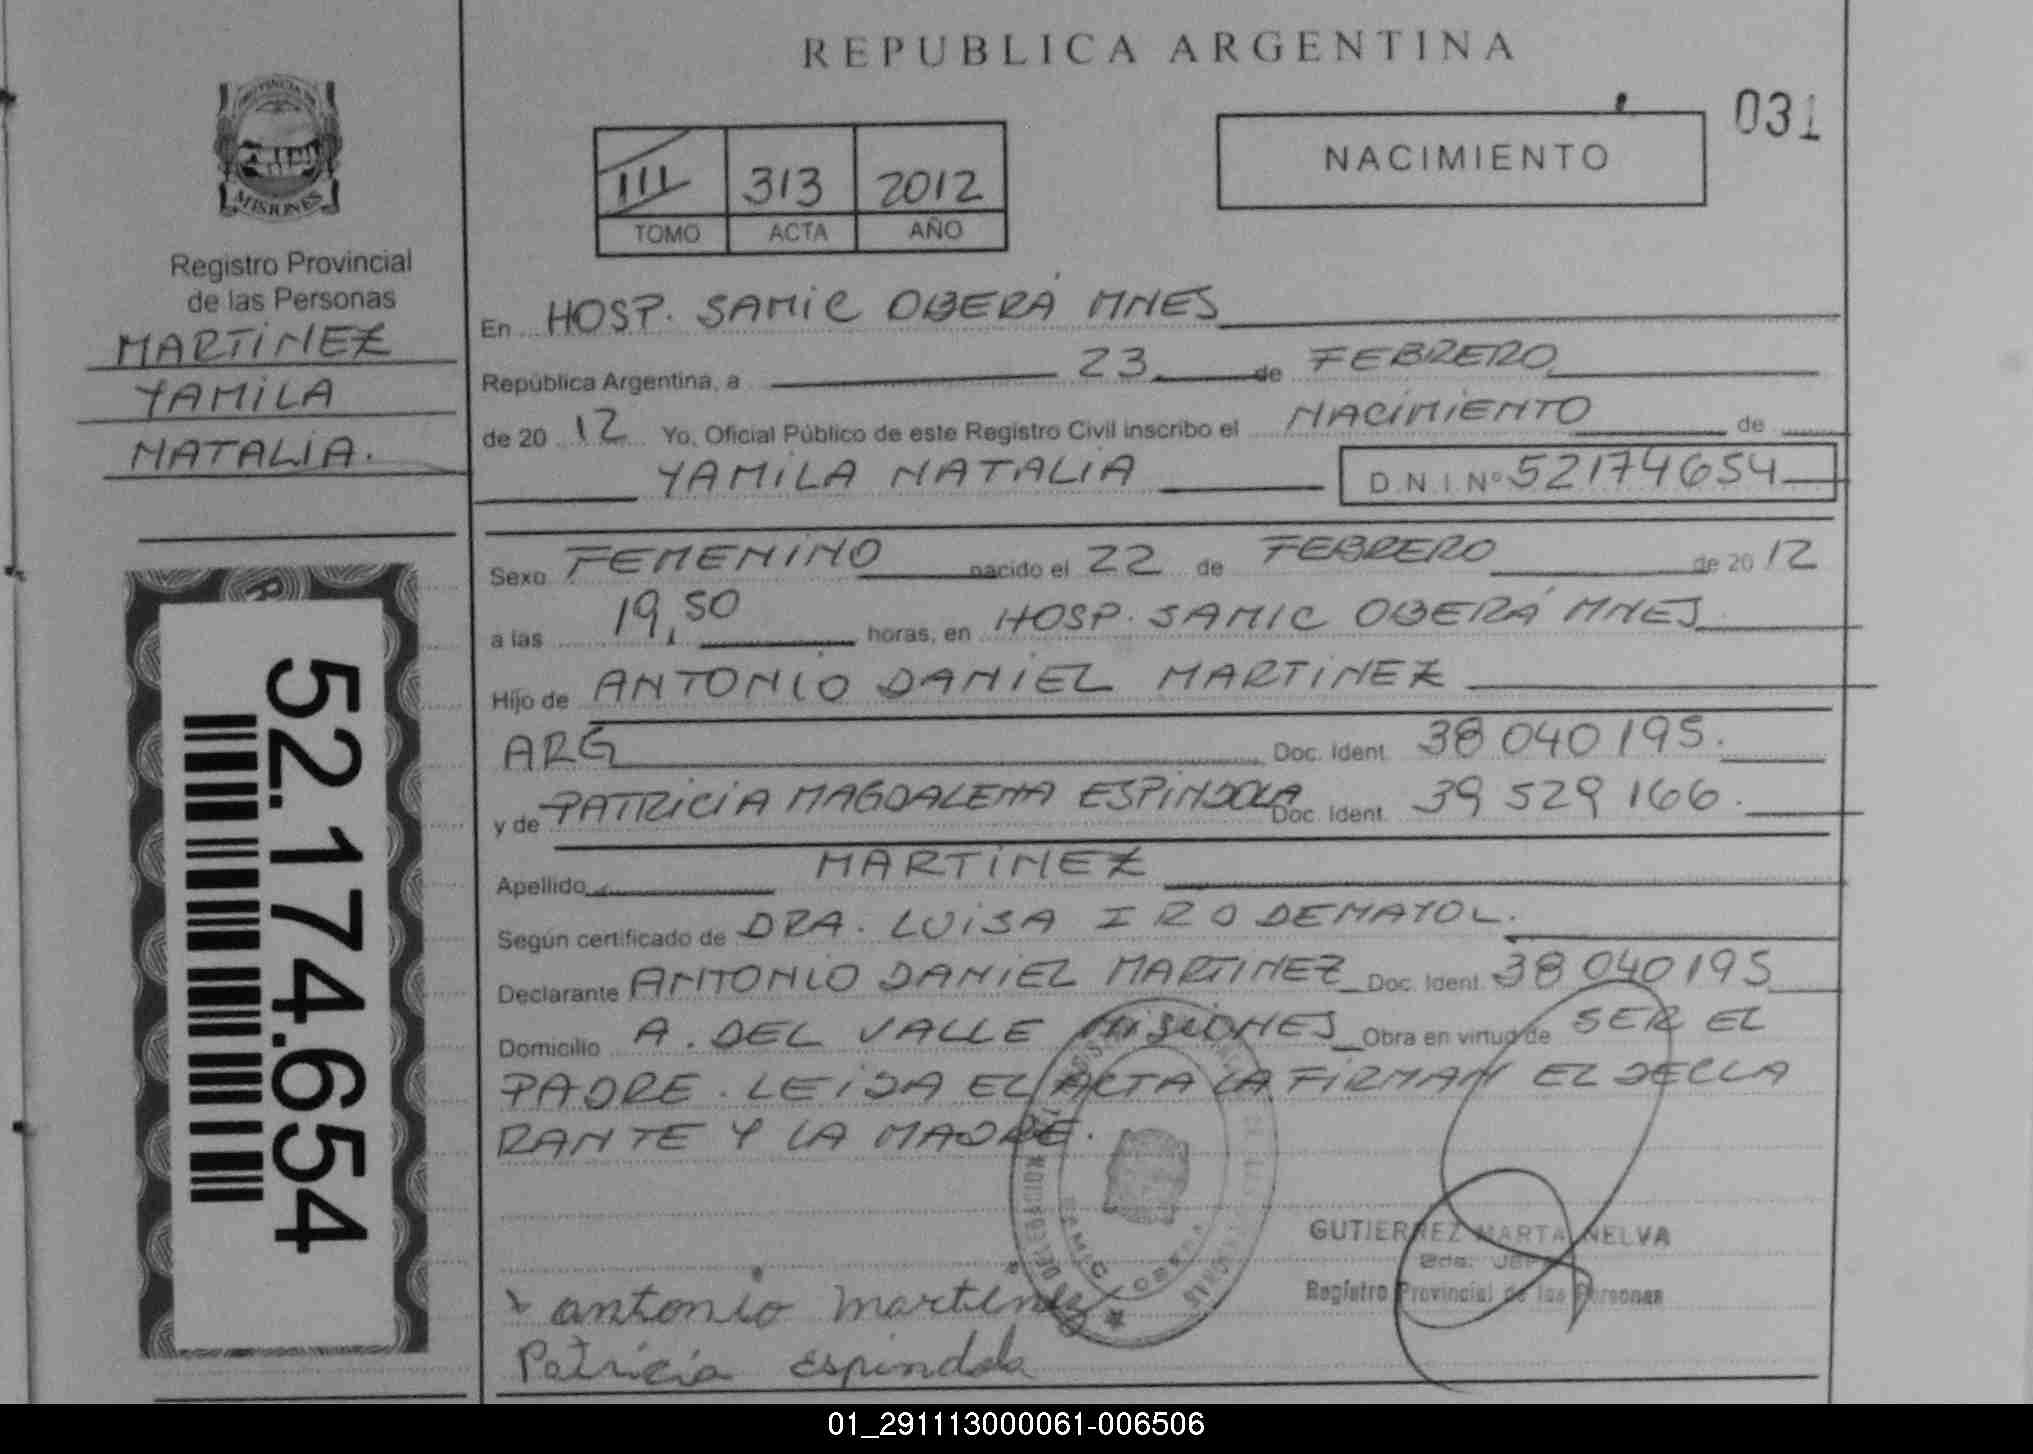 REPUBLICA ARGENTINA
031
NACIMIENTO
III 313 2012
TOMO ACTA AÑO
PROVINCIA DE
MISIONES
Registro Provincial
de las Personas
MARTINEZ
YAMILA
NATALIA.
52.174.654
En HOSP. SAMIC OBERÁ MNES
República Argentina, a 23 de FEBRERO
de 20 12 Yo, Oficial Público de este Registro Civil inscribo el NACIMIENTO de
YAMILA NATALIA D.N.I. Nº 52174654
Sexo FEMENINO nacido el 22 de FEBRERO de 20 12
a las 19,50 horas, en HOSP. SAMIC OBERÁ MNES
Hijo de ANTONIO DANIEL MARTINEZ
ARG Doc. Ident. 38 040 195.
y de PATRICIA MAGDALENA ESPINDOLA Doc. Ident. 39 529 166.
Apellido MARTINEZ
Según certificado de DRA. LUISA I RODEMAYOL.
Declarante ANTONIO DANIEL MARTINEZ Doc. Ident. 38 040 195
Domicilio A. DEL VALLE MISIONES Obra en virtud de SER EL
PADRE. LEIDA EL ACTA LA FIRMAN EL DECLA
RANTE Y LA MADRE.
SAMIC OBERA
GUTIERREZ MARTA NELVA
Registro Provincial de las Personas
x antonio martinez
Patricia Espindola
01_291113000061-006506